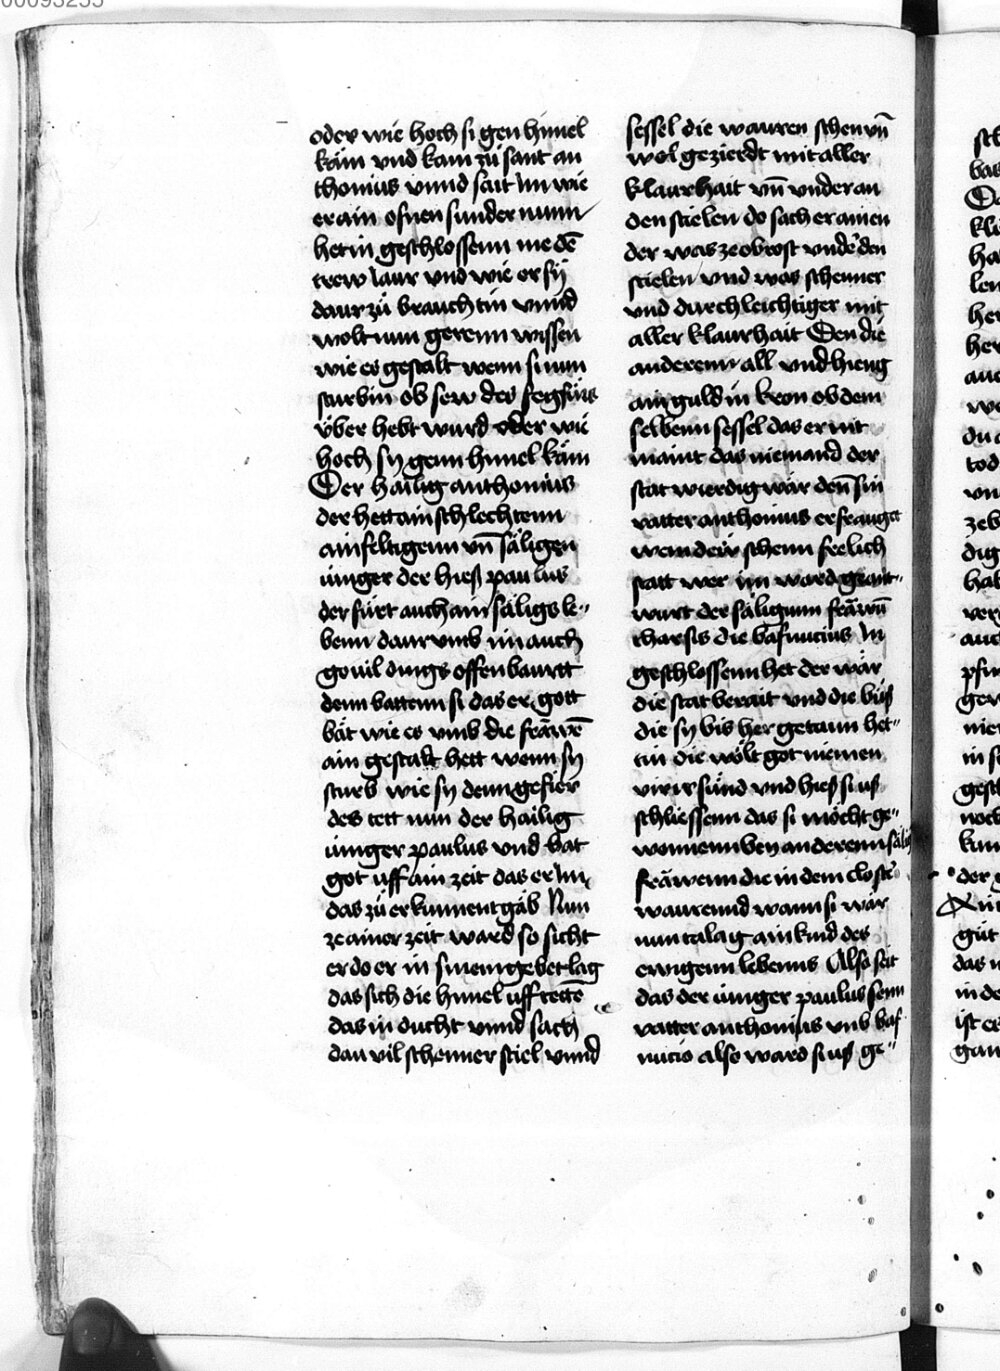 00093255
oder wie hoch si gen himel
käm vnd kam zu sant an
thonius vnnd sait im wie
er ain ofnen sunderinnn
het in geschlossenn in edē
trew laur vnd wie er sÿ
daur zů braucht in vnnd
wolt nun gerenn wissen
wie es gestalt wenn si nun
sturbin ob sew des fegfürs
über hebt wurd oder wie
hoch sy genn himel käm
Der hailig anthonius
der hett ain schlechtenn
ainfeltigenn vn̄ säligen
iünger der hieß paulus
der fürt auch ain säligs le-
benn daur vmb im auch
gott vil dings offenbaurtt
denn battenn si das er gott
bät wie es vmb die fräwē
ain gestalt hett wenn sy
sturb wie sy denn gefier
des tett nun der hailig
iünger paulus vnd bat
got uff ain zeit das er im
das zů erkinnent gäb Nun
ze ainer zeit ward so sicht
er do er in sinem gebet lag
das sich die himel uff tettē
das in ducht vnnd sach
dau vil schenner stiel vnnd
sessel die wauren schen vn̄
wol gezierdt mit aller
klaurhait vn̄ vnder an
den stielen do sach er ainen
der was ze obrost vnder den
stielen vnd was schenner
vnd durchleichtiger mit
aller klaurhait Den die
anderenn all vnd hieng
ain guldin kron ob dem
selbenn sessel das er nit
maint das niemand der
stat wierdig wär den̄ sin
vatter anthonius er fraugt
wem deiv schenn frelich
statt wer im ward geant-
wurt der säligunn fräwn̄
tharsis die bafnucius in
geschlossenn het der wär
die stat berait vnd die bůß
die sy bis her getann het-
tin die wölt got niemen
vir ir sünd vnd hieß si uß
schliessenn das si möcht ge-
wonnenn ben anderenn sälig
fräwenn die in dem closter
waurennd wann si wär
nun talag ain kind des
ewigenn lebenns Also seit
das der iünger paulus senn
vatter anthonius vnb baf
nucio also ward si uß ge-